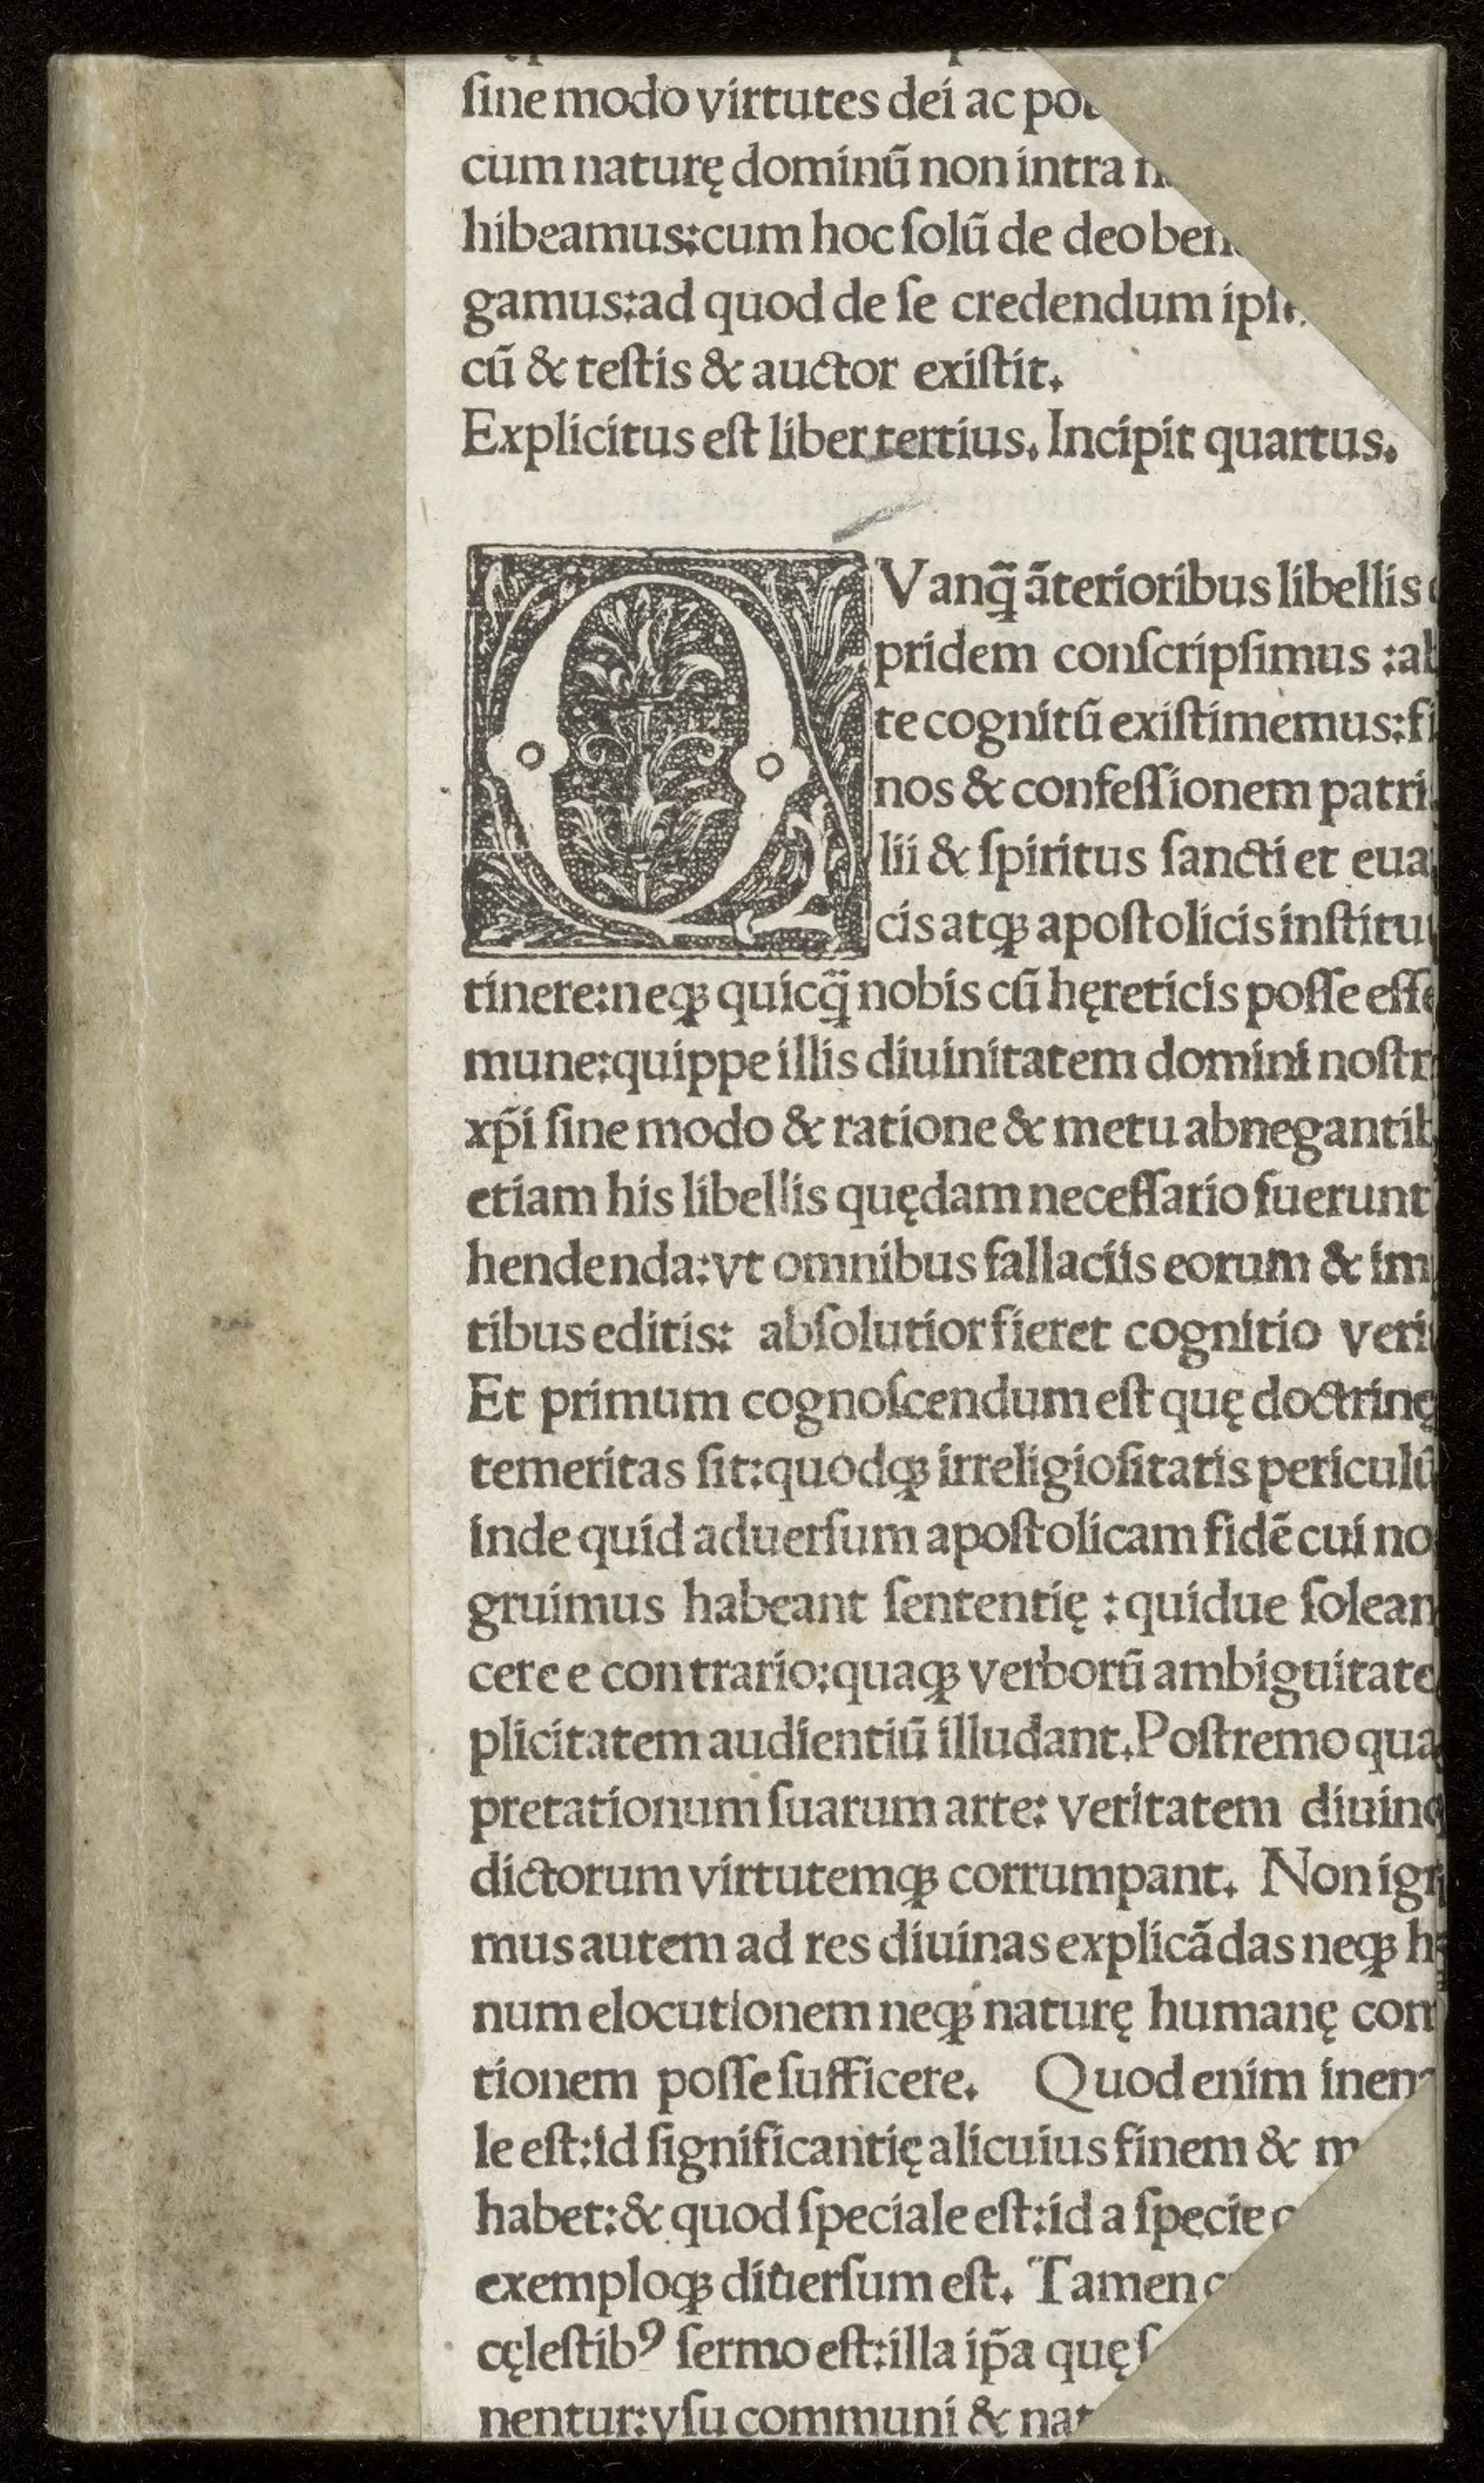 ſine modo virtutes dei ac
cum naturę dominũ non intra
hibeamus:cum hoc ſolũ de deo
gamus:ad quod de ſe credendum
cũ & teſtis & auctor exiſtit.
Explicitus eſt liber tertius. Incipit quartus.
QVanq̃ ãterioribus libellis
pridem conſcripſimus :
te cognitũ exiſtimemus:
nos & confeſſionem patri
lii & ſpiritus ſancti et eua
cis atqꝫ apoſtolicis inſtitu
tinere:neqꝫ quicq̃ nobis cũ hęreticis poſſe eſſe
mune:quippe illis diuinitatem domini noſtr
xp̃i ſine modo & ratione & metu abnegantib
etiam his libellis quędam neceſſario fuerunt
hendenda:vt omnibus fallaciis eorum & im
tibus editis: abſolutior fieret cognitio veri
Et primum cognoſcendum eſt quę doctrinę
temeritas ſit:quodqꝫ irreligioſitatis periculũ
inde quid aduerſum apoſtolicam fidẽ cui no
gruimus habeant ſententię :quidue ſolean
cere e contrario:quaqꝫ verborũ ambiguitate
plicitatem audientiũ illudant.Poſtremo qua
pretationum ſuarum arte: veritatem diuino
dictorum virtutemqꝫ corrumpant. Non ign
mus autem ad res diuinas explicãdas neqꝫ h
num elocutionem neqꝫ naturę humanę con
tionem poſſe ſufficere. Quod enim inen
le eſt:id ſignificantię alicuius finem & m
habet:& quod ſpeciale eſt:id a ſpecie
exemploqꝫ diuerſum eſt. Tamen
cęleſtibꝰ ſermo eſt:illa ip̃a quę
nentur:vſu communi & nat